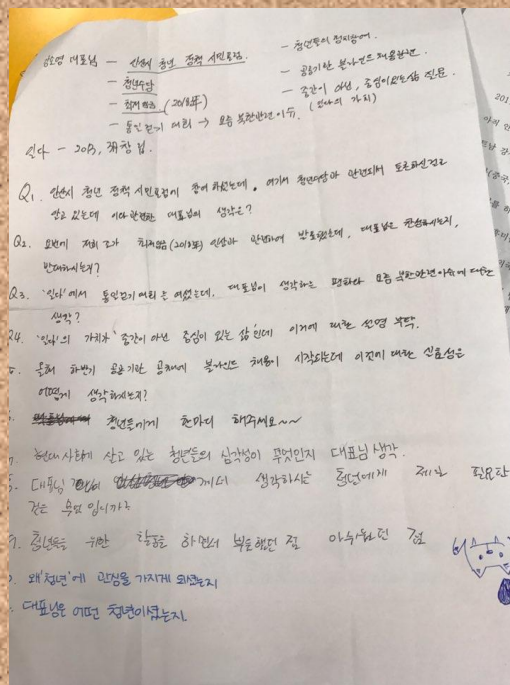 대표님 - 안산시 청년 정책 시민포럼
- 청년수당
- 최저임금 (2018年)
- 통일걷기 대회 → 요즘 북한관련 이슈.
- 청년들의 정치참여.
- 공공기관 블라인드 채용관련.
- 중간이 아닌, 중심이 있는 삶 질문.
(있다의 가치)
- 2013,
Q1. 안산시 청년 정책 시민포럼에 참여 하셨는데. 여기서 청년수당과 관련되서 토론하신걸로
알고 있는데 이와 관련한 대표님의 생각은?
Q2. 요번에 저희 조가 최저임금(2018年) 인상과 관련하여 발표했는데, 대표님은 찬성하시는지,
반대하시는지?
Q3. '있다'에서 통일걷기 대회를 여셨는데, 대표님이 생각하는 평화와 요즘 북한관련 이슈에 대한
생각?
Q4. '있다'의 가치가 '중간이 아닌 중심이 있는 삶'인데 이거에 대한 설명 부탁.
올해 하반기 공공기관 공채에 블라인드 채용이 시작되는데 이것에 대한 실효성은
어떻게 생각하시는지?
청년들에게 한마디 해주세요~~
현대사회에 살고 있는 청년들의 심각성이 무엇인지 대표님 생각.
대표님께서 생각하시는 청년에게 제일 필요한
것은 무엇 입니까?
청년들을 위한 활동을 하면서 뿌듯했던 점 아쉬웠던 점
왜 '청년'에 관심을 가지게 되셨는지
대표님은 어떤 청년이셨는지.